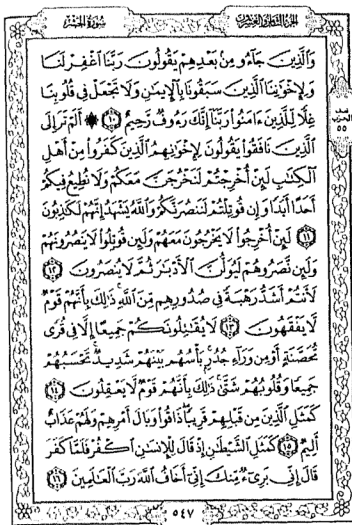 سُورَةُ الحَشْرِ الجُزْءُ الثَّامِنُ وَالعِشْرُونَ
وَالَّذِينَ جَآءُو مِنۢ بَعْدِهِمْ يَقُولُونَ رَبَّنَا ٱغْفِرْ لَنَا
وَلِإِخْوَٰنِنَا ٱلَّذِينَ سَبَقُونَا بِٱلْإِيمَٰنِ وَلَا تَجْعَلْ فِى قُلُوبِنَا
غِلًّا لِّلَّذِينَ ءَامَنُوا۟ رَبَّنَآ إِنَّكَ رَءُوفٌ رَّحِيمٌ ١٠ ۞ أَلَمْ تَرَ إِلَى
ٱلَّذِينَ نَافَقُوا۟ يَقُولُونَ لِإِخْوَٰنِهِمُ ٱلَّذِينَ كَفَرُوا۟ مِنْ أَهْلِ
ٱلْكِتَٰبِ لَئِنْ أُخْرِجْتُمْ لَنَخْرُجَنَّ مَعَكُمْ وَلَا نُطِيعُ فِيكُمْ
أَحَدًا أَبَدًا وَإِن قُوتِلْتُمْ لَنَنصُرَنَّكُمْ وَٱللَّهُ يَشْهَدُ إِنَّهُمْ لَكَٰذِبُونَ
١١ لَئِنْ أُخْرِجُوا۟ لَا يَخْرُجُونَ مَعَهُمْ وَلَئِن قُوتِلُوا۟ لَا يَنصُرُونَهُمْ
وَلَئِن نَّصَرُوهُمْ لَيُوَلُّنَّ ٱلْأَدْبَٰرَ ثُمَّ لَا يُنصَرُونَ ١٢
لَأَنتُمْ أَشَدُّ رَهْبَةً فِى صُدُورِهِم مِّنَ ٱللَّهِ ۚ ذَٰلِكَ بِأَنَّهُمْ قَوْمٌ
لَّا يَفْقَهُونَ ١٣ لَا يُقَٰتِلُونَكُمْ جَمِيعًا إِلَّا فِى قُرًى
مُّحَصَّنَةٍ أَوْ مِن وَرَآءِ جُدُرٍۭ ۚ بَأْسُهُم بَيْنَهُمْ شَدِيدٌ ۚ تَحْسَبُهُمْ
جَمِيعًا وَقُلُوبُهُمْ شَتَّىٰ ۚ ذَٰلِكَ بِأَنَّهُمْ قَوْمٌ لَّا يَعْقِلُونَ ١٤
كَمَثَلِ ٱلَّذِينَ مِن قَبْلِهِمْ قَرِيبًا ۖ ذَاقُوا۟ وَبَالَ أَمْرِهِمْ وَلَهُمْ عَذَابٌ
أَلِيمٌ ١٥ كَمَثَلِ ٱلشَّيْطَٰنِ إِذْ قَالَ لِلْإِنسَٰنِ ٱكْفُرْ فَلَمَّا كَفَرَ
قَالَ إِنِّى بَرِىٓءٌ مِّنكَ إِنِّىٓ أَخَافُ ٱللَّهَ رَبَّ ٱلْعَٰلَمِينَ ١٦
نصف
الحزب
٥٥
٥٤٧